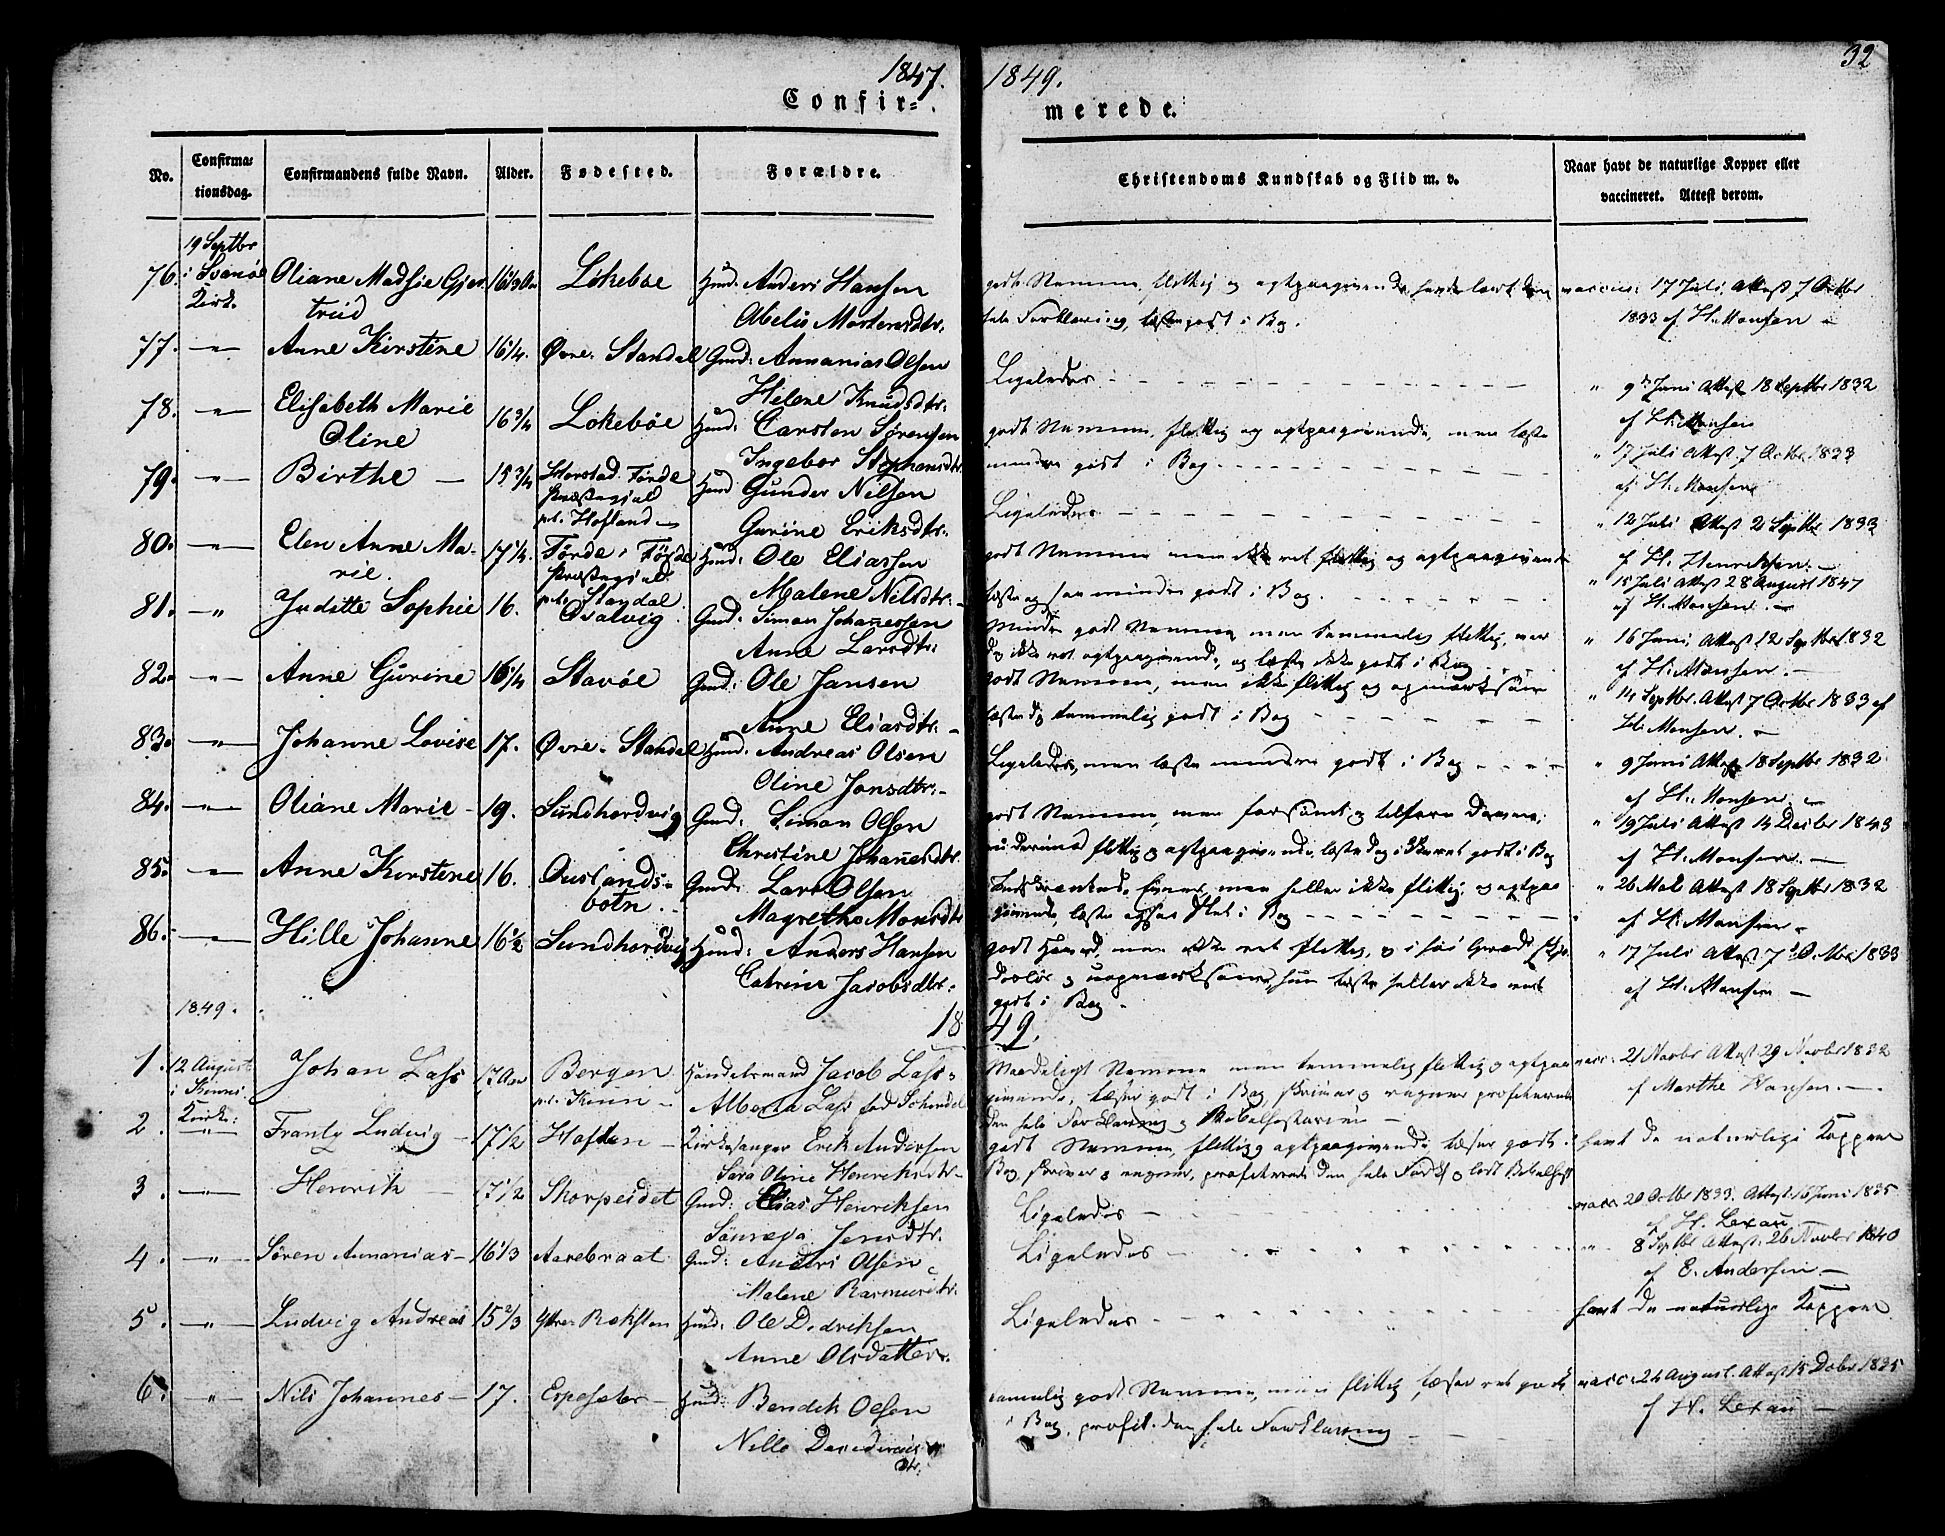 1847.
Confir=
1849.
32
merede.
No.
Confirma=
tionsdag.
Confirmandens fulde Navn.
Alder.
Fødested.
Forældre.
Christendoms Kundskab og Flid m. v.
Naar havt de naturlige Kopper eller
vaccineret. Attest derom.
19 Septbr
76. i Svanøe Oliane Madsie Gjer 16 1/3 Aar Løkebøe Huusmd: Anders Hansen
Kirk. trud Abelis Mortensdtr.
godt Nemme, flittig og agtpaagivende, havde lært den
hele Forklaring, læste godt i Bog.
vaccin: 17 Juli, Attest 7 Octbr
1833 af H. Monsen
77. —"— Anne Kirstine 16 1/4. Øvre Standal Gmd: Annanias Olsen
Helene Knudsdtr.
Ligeledes
" 9de Juni Attest 18 Septbr 1832
af H. Monsen
78. —"— Elisabeth Marie 16 3/4 Løkebøe Huusmd: Carsten Sørensen
Oline Ingebor Stephensdtr.
godt Nemme, flittig og agtpaagivende, men læste
mindre godt i Bog.
" 17 Juli Attest 7 Octbr. 1833
af H. Monsen
79. —"— Birthe — 15 3/4 Storstad Førde Huusmd Gunder Nilsen
Præstegjeld
pt. Hofland Gurine Eriksdtr.
Ligeledes
" 12 Juli Attest 2 Septbr 1833
af H. Henriksen
80. —"— Elen Anne Ma- 17 1/4. Førde i Førde Huusmd: Ole Eliassen
rie. Præstegjeld
pt. Standal Malene Nilsdtr.
godt Nemme men ikke ret flittig og agtpaagivende
læste og saa mindre godt i Bog.
" 15 Juli Attest 28 August 1847
af H. Monsen.
81. —" Juditte Sophie 16. Osalvig. Gmd: Simon Johanessen
Anne Larsdtr.
Mindre godt Nemme, men temmelig flittig, var
dog ikke ret agtpaagivende, og læste ikke godt i Bog
" 16 Juni Attest 12 Septbr 1832
af H. Monsen.
82. —"— Anne Gurine 16 1/4 Stavøe Gmd: Ole Jansen
Anne Eliasdtr.
godt Nemme, men ikke flittig og opmærksom
læste dog temmelig godt i Bog
" 14 Septbr. Attest 7 Octbr 1833 af
H. Monsen.
83. —"— Johanne Lovise 17. Øvre Standal Huusmd: Andreas Olsen
Oline Jonsdtr.
Ligeledes, men læste mindre godt i Bog
" 9 Juni Attest 18 Septbr 1832
af H. Monsen
84. —"— Oliane Marie 19. Sundhordvig Gmd: Simon Olsen
Christine Johanesdtr.
godt Nemme, men forsømt
flittig og agtpaagivende, læste dog ikke ret godt i Bog
" 19 Juli Attest 14 Decbr 1843
af H. Monsen.
85. —"— Anne Kirstine 16. Ouslands- Gmd: Lars Olsen
botn. Magrethe Monsdtr
Indskrænkede Evner, men heller ikke flittig og agtpaa
givende, læste ogsaa slet i Bog
" 26 Mai Attest 18 Septbr 1832
af H. Monsen.
86. —"— Hille Johanne 16 1/2 Sundhordvig Huusmd: Anders Hansen
Catrine Jacobsdtr.
godt Hoved, men ikke ret flittig, og i høi Grad
og uopmærksom, hun læste heller ikke ret
godt i Bog.
" 17 Juli Attest 7de Octbr 1833
af H. Monsen
1849.
1849.
1. 12 August Johan Lass 17 Aar Bergen Handelsmand Jacob Lass
i Kinns pt. Kinn Alberta Lass fød Schindel
Kirke:
Maadeligt Nemme men temmelig flittig og agtpaa
givende, læser godt i Bog, skriver og regner profiterede
den hele Forklaring og Bibelhistorien
vacc. 21 Novbr Attest 29 Novbr 1832
af Marthe Hansen.
2. —"— Frantz Ludvig 17 1/2 Hoften Kirkesanger Erik Andersen
Sara Oline Henriksdtr.
godt Nemme, flittig og agtpaagivende læser godt i
Bog, skriver og regner, profiterede den hele Forkl. og lært Bibelhist
havt de naturlige Kopper
3. —"— Henrik 17 1/2 Skorpeidet Gmd: Elias Henriksen
Jensdtr.
Ligeledes
vacc. 20 Octbr 1833. Attest 16 Juni 1835
af H. Lexau
4. —"— Søren Annanias 16 1/3 Aarebraat. Gmd: Anders Olsen
Malene Rasmusdtr.
Ligeledes
" 8 Septbr Attest 26 Novbr 1840
af E. Andersen
5. —"— Ludvig Andreas 15 2/3 Ytre Reksten Huusmd: Ole Didriksen
Anne Olsdatter.
Ligeledes
havt de naturlige Kopper
6. " Nils Johannes 17. Espeseter Huusmd: Bendik Olsen
Nille
dtr.
temmelig godt Nemme, men flittig, læser ret godt
i Bog, profit. den hele Forklaring
vacc. 24 August. Attest 15 Decbr 1835
af H. Lexau